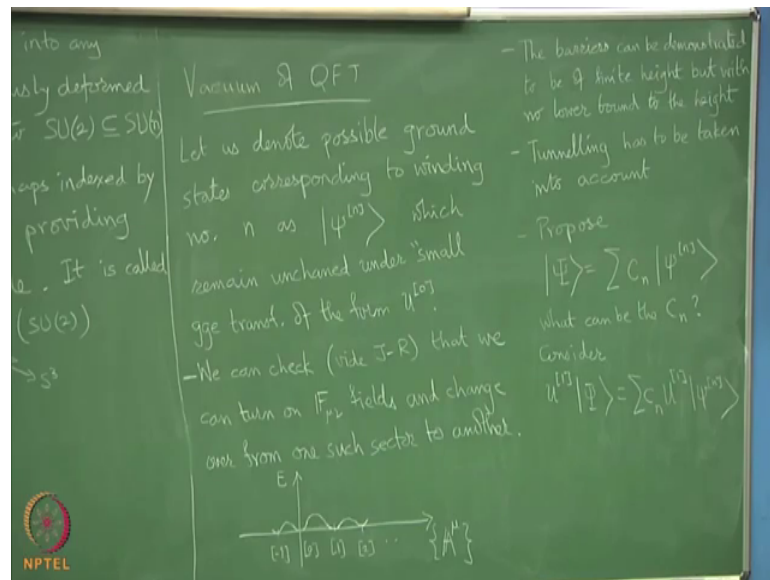 into any
usly deformed
SU(2) ⊆ SU(n)
aps indexed by
providing
e. It is called
(SU(2))
→ S³
Vacuum of QFT
Let us denote possible ground
states corresponding to winding
no. n as |Ψ^[n]⟩ which
remain unchaned under "small
gge transf. of the form U^[0].
- We can check (vide J-R) that we
can turn on F_μν fields and change
over from one such sector to another.
E
[-1] [0] [1] [2] .. {A^μ}
- The barriers can be demonstrated
to be of finite height but with
no lower bound to the height
- Tunnelling has to be taken
into account
- Propose
|Ψ⟩ = Σ C_n |Ψ^[n]⟩
what can be the C_n?
Consider
U^[1] |Ψ⟩ = Σ C_n U^[1] |Ψ^[n]⟩
NPTEL